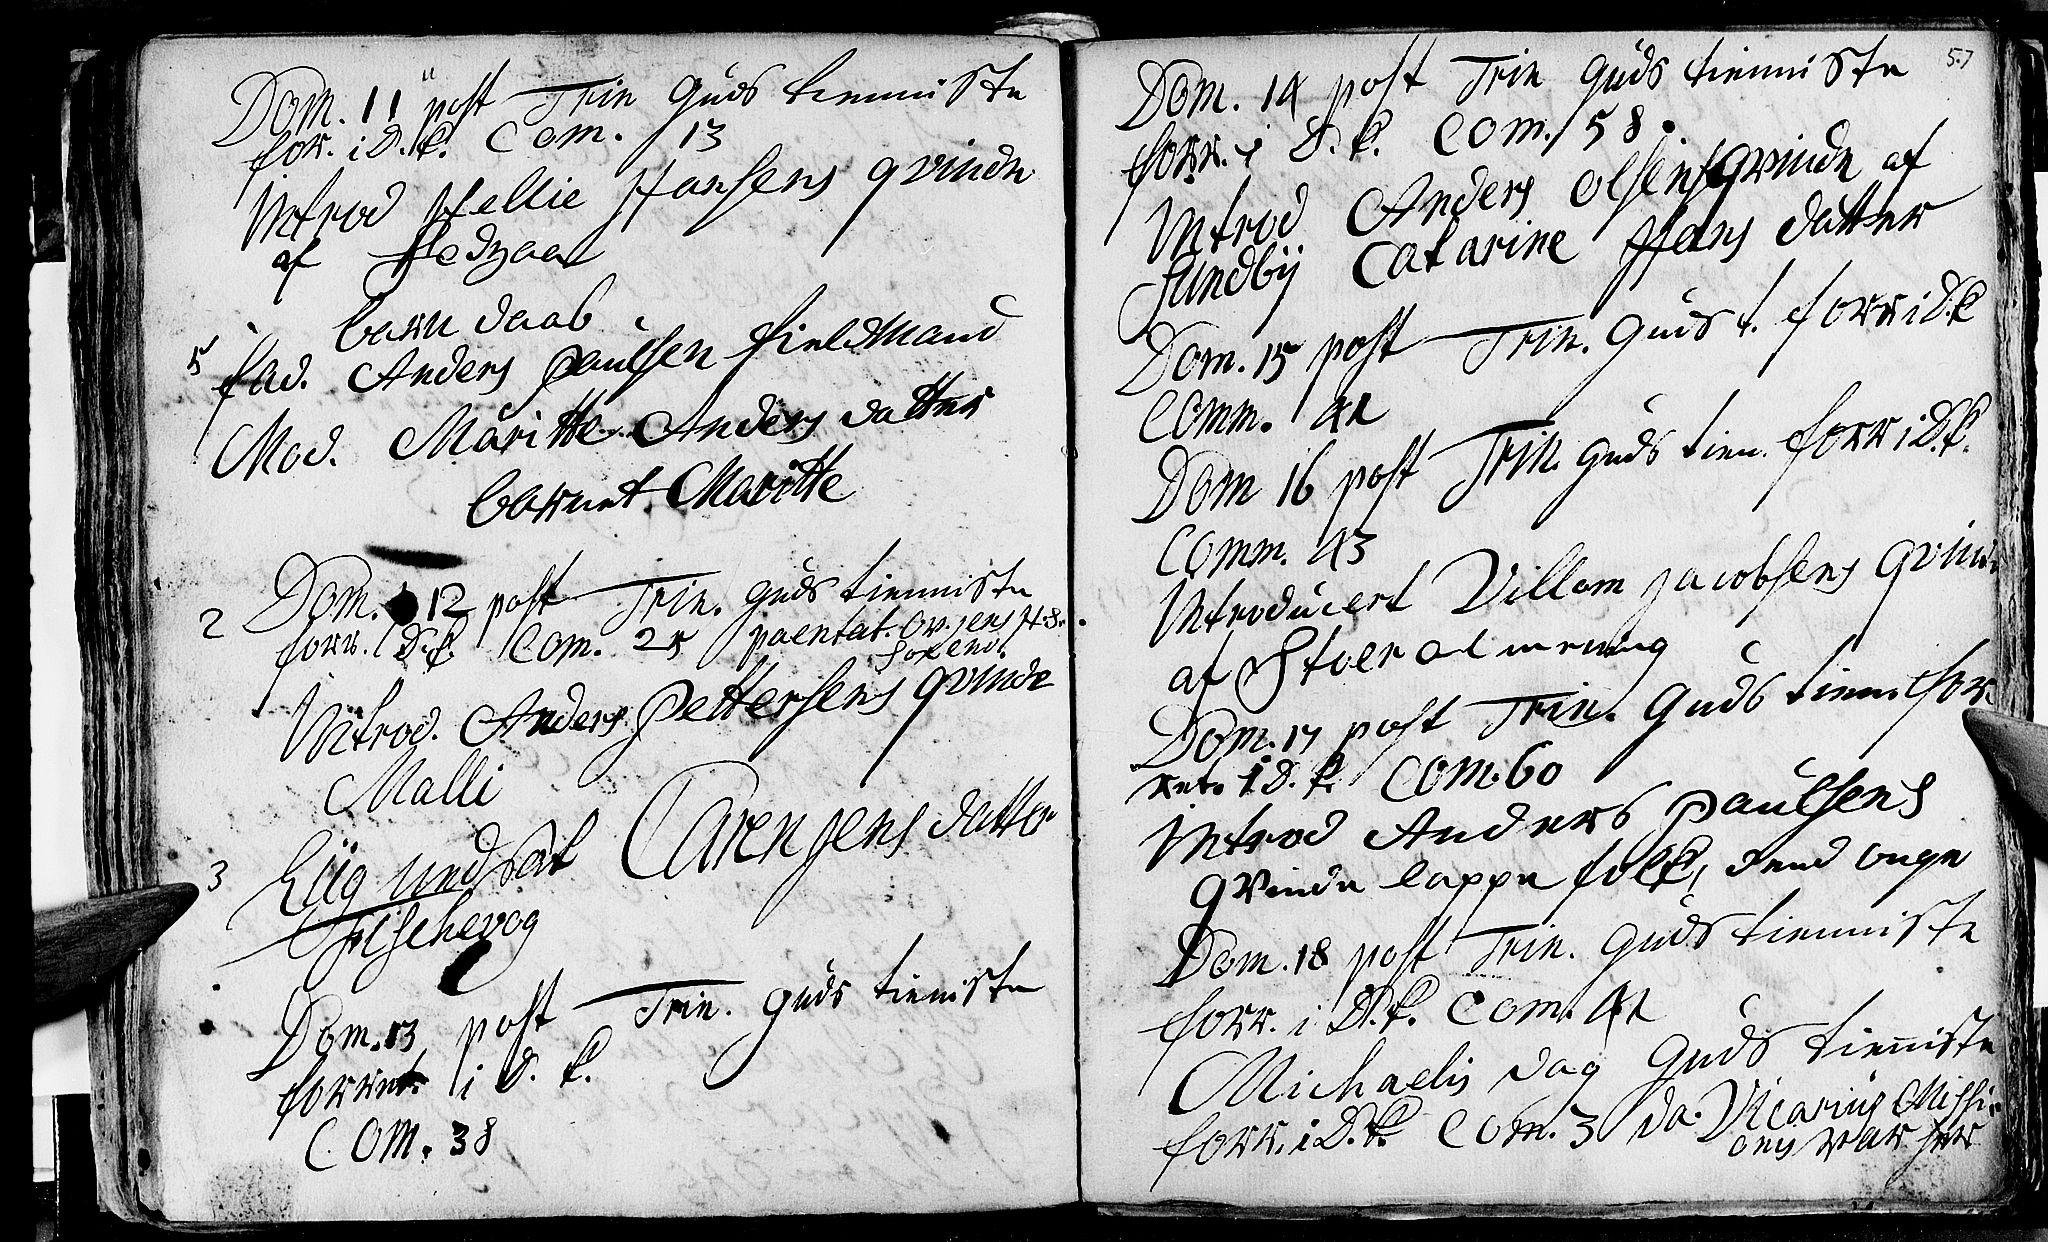 Dom. 11 post Trin Guds tienniste
for. i D. k. Com. 13
Introd Hellie Hansens qvinde
af Hedzaal
barn daab
5 fad. Anders Paulsen fieldmand
Mod. Maritte Anders datter
barnet Maritte
2 Dom. 12 post Trin. Guds tienniste
forr. i D. k. Com. 25
Introd. Anders Pettersens qvinde
Malli
3 Liig undsat Caren Jens datter
Fischevog
Dom. 13 post Trin. Guds tieniste
forret. i D. k.
Com. 38
57
Dom. 14 post Trin Guds tienniste
forr. i D. k. Com. 58.
Introd Anders Olsens qvinde af
Sundby Catarine Hans datter
Dom. 15 post Trin. Guds t. forr i D. k
Comm. 41
Dom 16 post Trin. Guds tien. forr i D. k.
Comm. 43
Introducert Villom Jacobsens qvin
af Stoer almening
Dom. 17 post Trin. Guds tien. for
ret. i D. k. Com. 60
Introd Anders Paulsens
qvinde lappe folk, dend unge
Dom. 18 post Trin. Guds tienniste
forr. i D. k. Com. 41
Michaelis dag Guds tienniste
forr. i D. k. Com. 3 da Vicarius Missi
onis var her